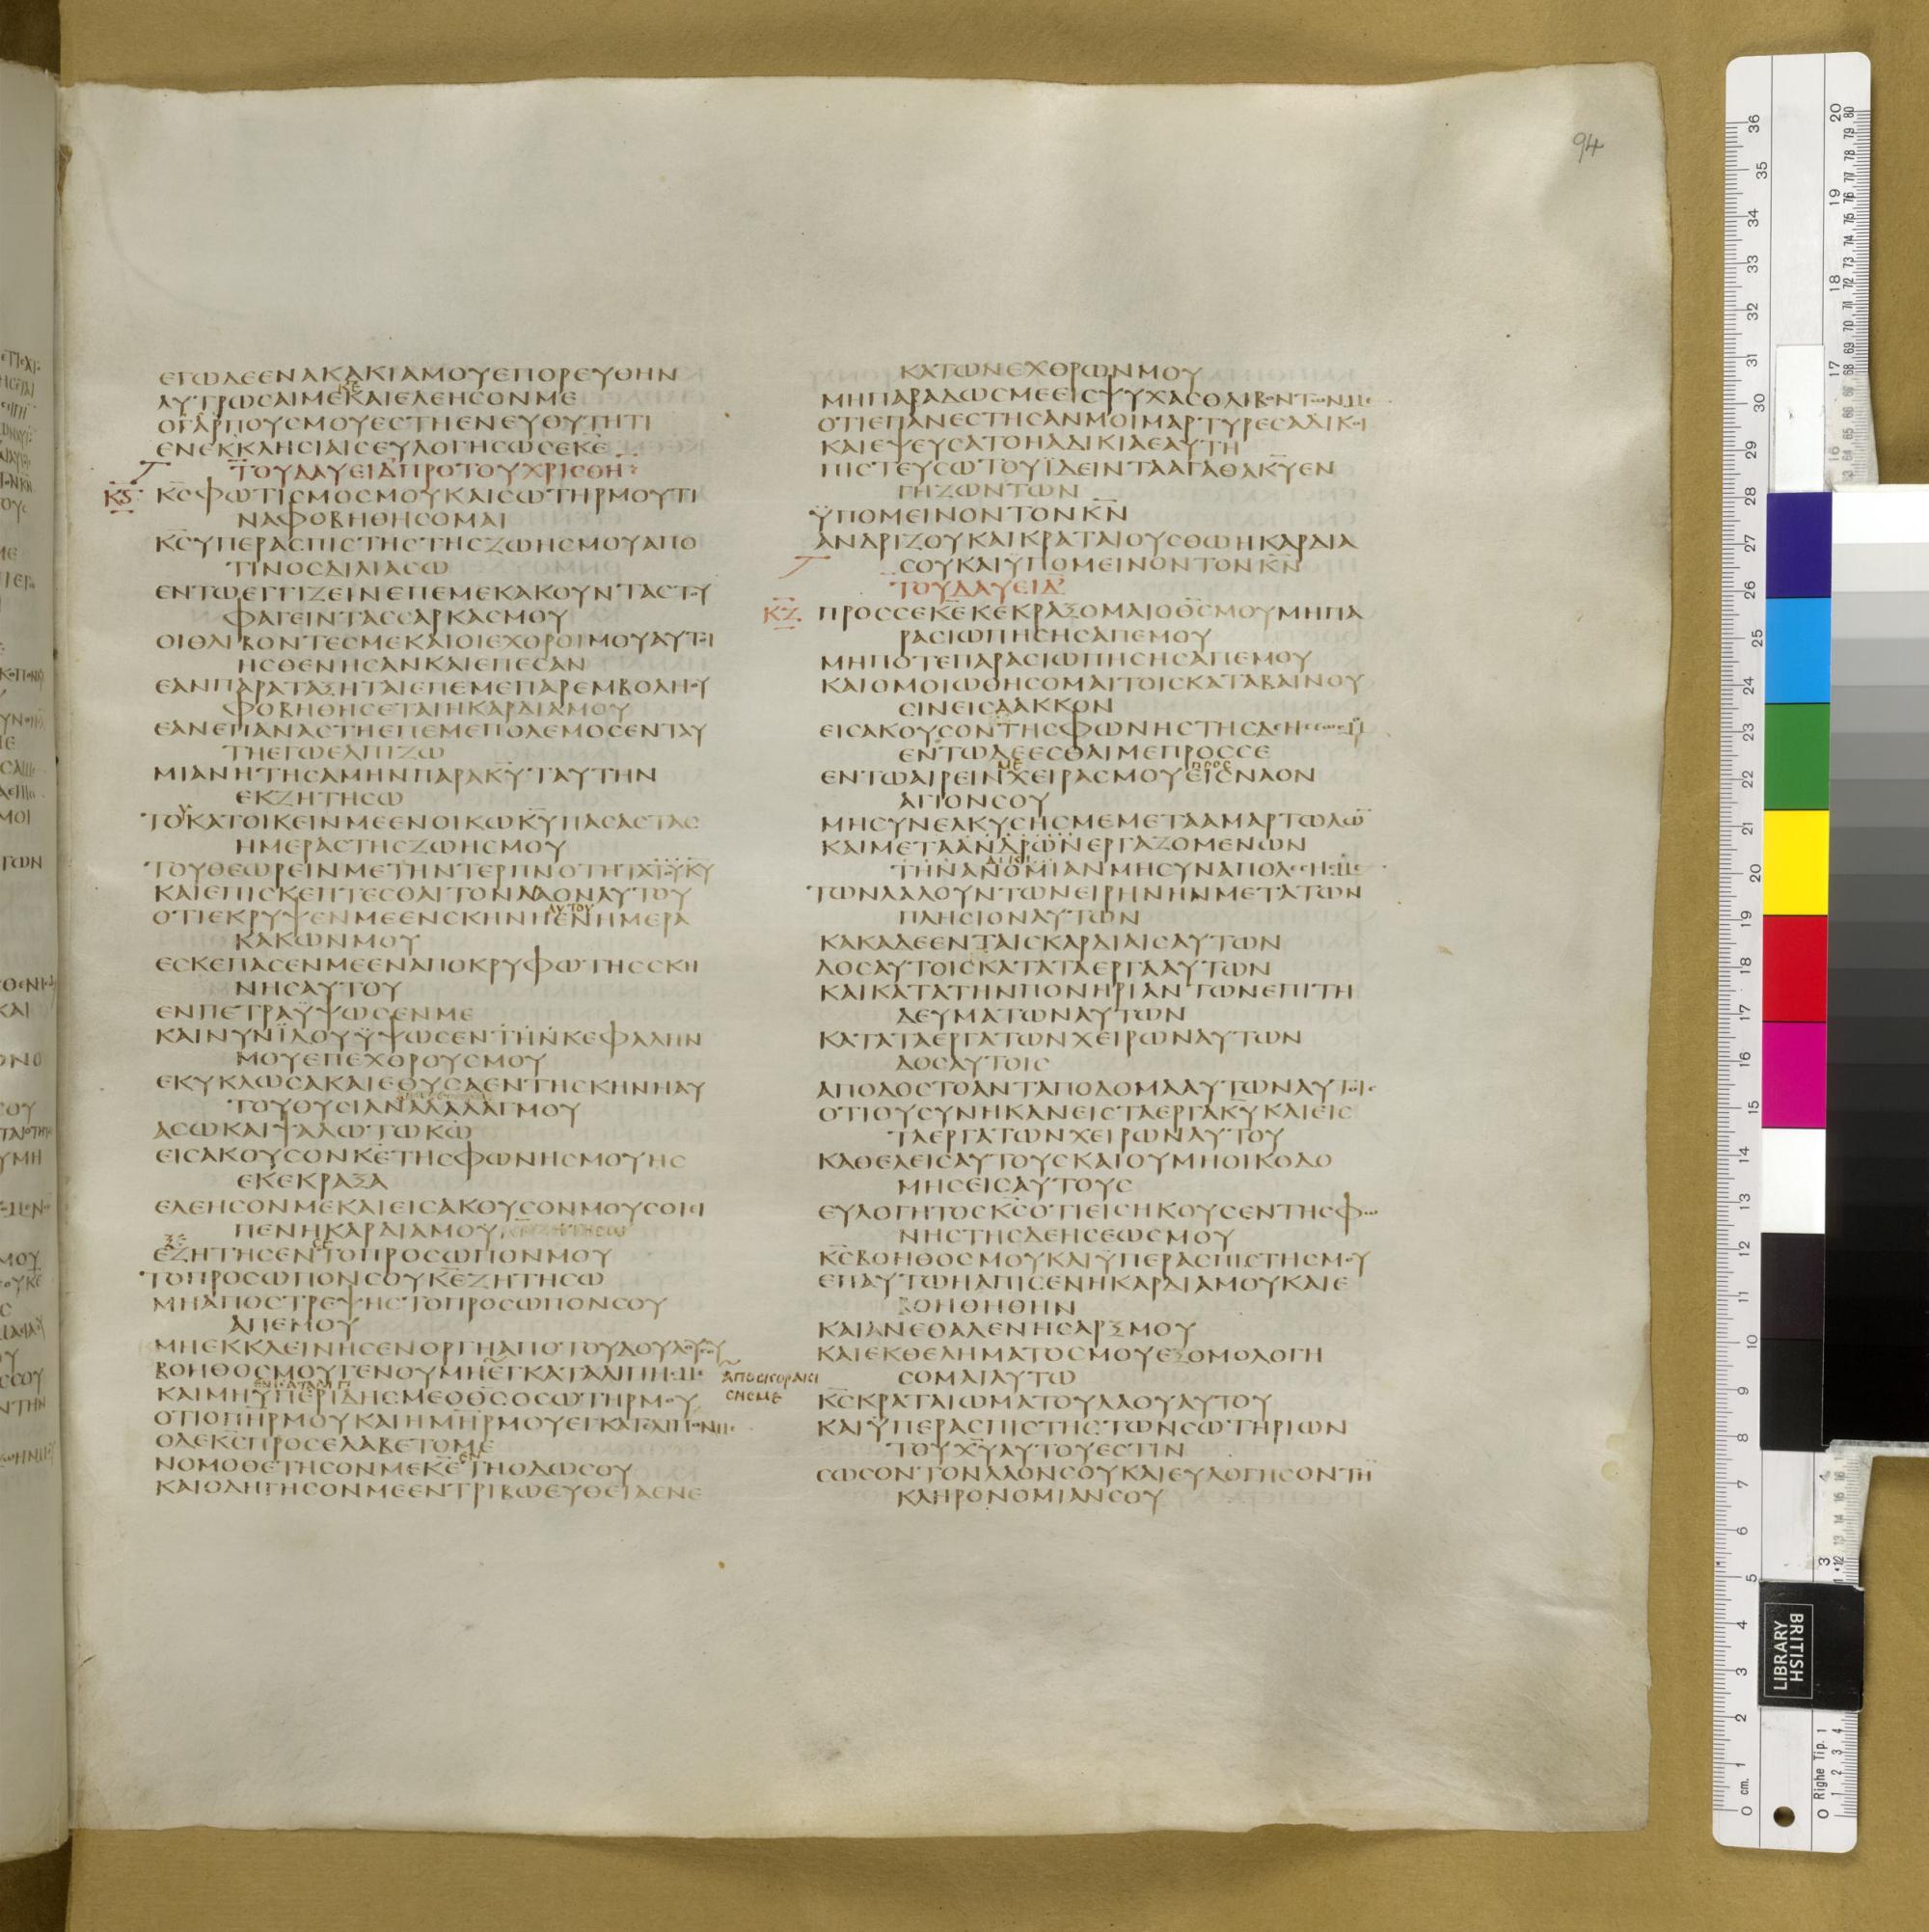 94
ΕΓΩΔΕΕΝΑΚΑΚΙΑΜΟΥΕΠΟΡΕΥΘΗΝ
ΚΕ
ΛΥΤΡΩΣΑΙΜΕΚΑΙΕΛΕΗСΟΝΜΕ
ΟΓΑΡΠΟΥСΜΟΥΕСΤΗΕΝΕΥΘΥΤΗΤΙ
ΕΝΕΚΚΛΗСΙΑΙСΕΥΛΟΓΗСΩСΕΚΕ
ΤΟΥΔΑΥΕΙΔΠΡΟΤΟΥΧΡΙСΘΗ
ΚϚ ΚСΦΩΤΙСΜΟСΜΟΥΚΑΙСΩΤΗΡΜΟΥΤΙ
ΝΑΦΟΒΗΘΗСΟΜΑΙ
ΚСΥΠΕΡΑСΠΙСΤΗСΤΗСΖΩΗСΜΟΥΑΠΟ
ΤΙΝΟСΔΙΛΙΑСΩ
ΕΝΤΩΕΓΓΙΖΕΙΝΕΠΕΜΕΚΑΚΟΥΝΤΑСΤΟΥ
ΦΑΓΕΙΝΤΑССΑΡΚΑСΜΟΥ
ΟΙΘΛΙΒΟΝΤΕСΜΕΚΑΙΟΙΕΧΘΡΟΙΜΟΥΑΥΤΟΙ
ΗСΘΕΝΗСΑΝΚΑΙΕΠΕСΑΝ
ΕΑΝΠΑΡΑΤΑΞΗΤΑΙΕΠΕΜΕΠΑΡΕΜΒΟΛΗΟΥ
ΦΟΒΗΘΗСΕΤΑΙΗΚΑΡΔΙΑΜΟΥ
ΕΑΝΕΠΑΝΑСΤΗΕΠΕΜΕΠΟΛΕΜΟСΕΝΤΑΥ
ΤΗΕΓΩΕΛΠΙΖΩ
ΜΙΑΝΗΤΗСΑΜΗΝΠΑΡΑΚΥΤΑΥΤΗΝ
ΕΚΖΗΤΗСΩ
ΤΟΥΚΑΤΟΙΚΕΙΝΜΕΕΝΟΙΚΩΚΥΠΑСΑСΤΑС
ΗΜΕΡΑСΤΗСΖΩΗСΜΟΥ
ΤΟΥΘΕΩΡΕΙΝΜΕΤΗΝΤΕΡΠΝΟΤΗΤΑΤΟΥΚΥ
ΚΑΙΕΠΙСΚΕΠΤΕСΘΑΙΤΟΝΝΑΟΝΑΥΤΟΥ
ΑΥΤΟΥ
ΟΤΙΕΚΡΥΨΕΝΜΕΕΝСΚΗΝΗΕΝΗΜΕΡΑ
ΚΑΚΩΝΜΟΥ
ΕСΚΕΠΑСΕΝΜΕΕΝΑΠΟΚΡΥΦΩΤΗССΚΗ
ΝΗСΑΥΤΟΥ
ΕΝΠΕΤΡΑΫΨΩСΕΝΜΕ
ΚΑΙΝΥΝΪΔΟΥΫΨΩСΕΝΤΗΝΚΕΦΑΛΗΝ
ΜΟΥΕΠΕΧΘΡΟΥСΜΟΥ
ΕΚΥΚΛΩСΑΚΑΙΕΘΥСΑΕΝΤΗСΚΗΝΗΑΥ
ΤΟΥΘΥСΙΑΝΑΛΑΛΑΓΜΟΥ
ΑСΩΚΑΙΨΑΛΩΤΩΚΩ
ΕΙСΑΚΟΥСΟΝΚΕΤΗСΦΩΝΗСΜΟΥΗС
ΕΚΕΚΡΑΞΑ
ΕΛΕΗСΟΝΜΕΚΑΙΕΙСΑΚΟΥСΟΝΜΟΥСΟΙΕΙ
ΠΕΝΗΚΑΡΔΙΑΜΟΥ
ΕΖΗΤΗСΕΝΤΟΠΡΟСΩΠΟΝΜΟΥ
ΤΟΠΡΟСΩΠΟΝСΟΥΚΕΖΗΤΗСΩ
ΜΗΑΠΟСΤΡΕΨΗСΤΟΠΡΟСΩΠΟΝСΟΥ
ΑΠΕΜΟΥ
ΜΗΕΚΚΛΕΙΝΗСΕΝΟΡΓΗΑΠΟΤΟΥΔΟΥΛΟΥСΟΥ
ΒΟΗΘΟСΜΟΥΓΕΝΟΥΜΗΕΓΚΑΤΑΛΙΠΗСΜΕ
ΑΠΟСΚΟΡΑΚΙ
СΗСΜΕ
ΕΝΚΑΤΑΛΙΠΗ
ΚΑΙΜΗΥΠΕΡΙΔΗСΜΕΟΘСΟСΩΤΗΡΜΟΥ
ΟΤΙΟΠΗΡΜΟΥΚΑΙΗΜΗΡΜΟΥΕΓΚΑΤΕΛΙΠΟΝΜΕ
ΟΔΕΚСΠΡΟСΕΛΑΒΕΤΟΜΕ
ΕΝ
ΝΟΜΟΘΕΤΗСΟΝΜΕΚΕΤΗΟΔΩСΟΥ
ΚΑΙΟΔΗΓΗСΟΝΜΕΕΝΤΡΙΒΩΕΥΘΕΙΑΕΝΕ
ΚΑΤΩΝΕΧΘΡΩΝΜΟΥ
ΜΗΠΑΡΑΔΩСΜΕΕΙСΨΥΧΑСΘΛΙΒΟΝΤΩΝΜΕ
ΟΤΙΕΠΑΝΕСΤΗСΑΝΜΟΙΜΑΡΤΥΡΕСΑΔΙΚΟΙ
ΚΑΙΕΨΕΥСΑΤΟΗΑΔΙΚΙΑΕΑΥΤΗ
ΠΙСΤΕΥСΩΤΟΥΪΔΕΙΝΤΑΑΓΑΘΑΚΥΕΝ
ΓΗΖΩΝΤΩΝ
ΫΠΟΜΕΙΝΟΝΤΟΝΚΝ
ΑΝΔΡΙΖΟΥΚΑΙΚΡΑΤΑΙΟΥСΘΩΗΚΑΡΔΙΑ
СΟΥΚΑΙΫΠΟΜΕΙΝΟΝΤΟΝΚΝ
ΤΟΥΔΑΥΕΙΔ
ΚΖ ΠΡΟССΕΚΕΚΕΚΡΑΞΟΜΑΙΟΘСΜΟΥΜΗΠΑ
ΡΑСΙΩΠΗСΗСΑΠΕΜΟΥ
ΜΗΠΟΤΕΠΑΡΑСΙΩΠΗСΗСΑΠΕΜΟΥ
ΚΑΙΟΜΟΙΩΘΗСΟΜΑΙΤΟΙСΚΑΤΑΒΑΙΝΟΥ
СΙΝΕΙСΛΑΚΚΟΝ
ΕΙСΑΚΟΥСΟΝΤΗСΦΩΝΗСΤΗСΔΕΗСΕΩСΜΟΥ
ΕΝΤΩΔΕΕСΘΑΙΜΕΠΡΟССΕ
ΜΕ ΠΡΟС
ΕΝΤΩΑΙΡΕΙΝΧΕΙΡΑСΜΟΥΕΙСΝΑΟΝ
ΑΓΙΟΝСΟΥ
ΜΗСΥΝΕΛΚΥСΗСΜΕΜΕΤΑΑΜΑΡΤΩΛΩ
ΚΑΙΜΕΤΑΑΝΔΡΩΝΕΡΓΑΖΟΜΕΝΩΝ
ΤΗΝΑΝΟΜΙΑΝΜΗСΥΝΑΠΟΛΕСΗСΜΕ
ΤΩΝΛΑΛΟΥΝΤΩΝΕΙΡΗΝΗΝΜΕΤΑΤΩΝ
ΠΛΗСΙΟΝΑΥΤΩΝ
ΚΑΚΑΔΕΕΝΤΑΙСΚΑΡΔΙΑΙСΑΥΤΩΝ
ΔΟСΑΥΤΟΙСΚΑΤΑΤΑΕΡΓΑΑΥΤΩΝ
ΚΑΙΚΑΤΑΤΗΝΠΟΝΗΡΙΑΝΤΩΝΕΠΙΤΗ
ΔΕΥΜΑΤΩΝΑΥΤΩΝ
ΚΑΤΑΤΑΕΡΓΑΤΩΝΧΕΙΡΩΝΑΥΤΩΝ
ΔΟСΑΥΤΟΙС
ΑΠΟΔΟСΤΟΑΝΤΑΠΟΔΟΜΑΑΥΤΩΝΑΥΤΟΙС
ΟΤΙΟΥСΥΝΗΚΑΝΕΙСΤΑΕΡΓΑΚΥΚΑΙΕΙС
ΤΑΕΡΓΑΤΩΝΧΕΙΡΩΝΑΥΤΟΥ
ΚΑΘΕΛΕΙСΑΥΤΟΥСΚΑΙΟΥΜΗΟΙΚΟΔΟ
ΜΗСΕΙСΑΥΤΟΥС
ΕΥΛΟΓΗΤΟСΚСΟΤΙΕΙСΗΚΟΥСΕΝΤΗСΦΩ
ΝΗСΤΗСΔΕΗСΕΩСΜΟΥ
ΚСΒΟΗΘΟСΜΟΥΚΑΙΫΠΕΡΑСΠΙСΤΗСΜΟΥ
ΕΠΑΥΤΩΗΛΠΙСΕΝΗΚΑΡΔΙΑΜΟΥΚΑΙΕ
ΒΟΗΘΗΘΗΝ
ΚΑΙΑΝΕΘΑΛΕΝΗСΑΡΞΜΟΥ
ΚΑΙΕΚΘΕΛΗΜΑΤΟСΜΟΥΕΞΟΜΟΛΟΓΗ
СΟΜΑΙΑΥΤΩ
ΚСΚΡΑΤΑΙΩΜΑΤΟΥΛΑΟΥΑΥΤΟΥ
ΚΑΙΫΠΕΡΑСΠΙСΤΗСΤΩΝСΩΤΗΡΙΩΝ
ΤΟΥΧΥΑΥΤΟΥΕСΤΙΝ
СΩСΟΝΤΟΝΛΑΟΝСΟΥΚΑΙΕΥΛΟΓΗСΟΝΤΗ
ΚΛΗΡΟΝΟΜΙΑΝСΟΥ
BRITISH
LIBRARY